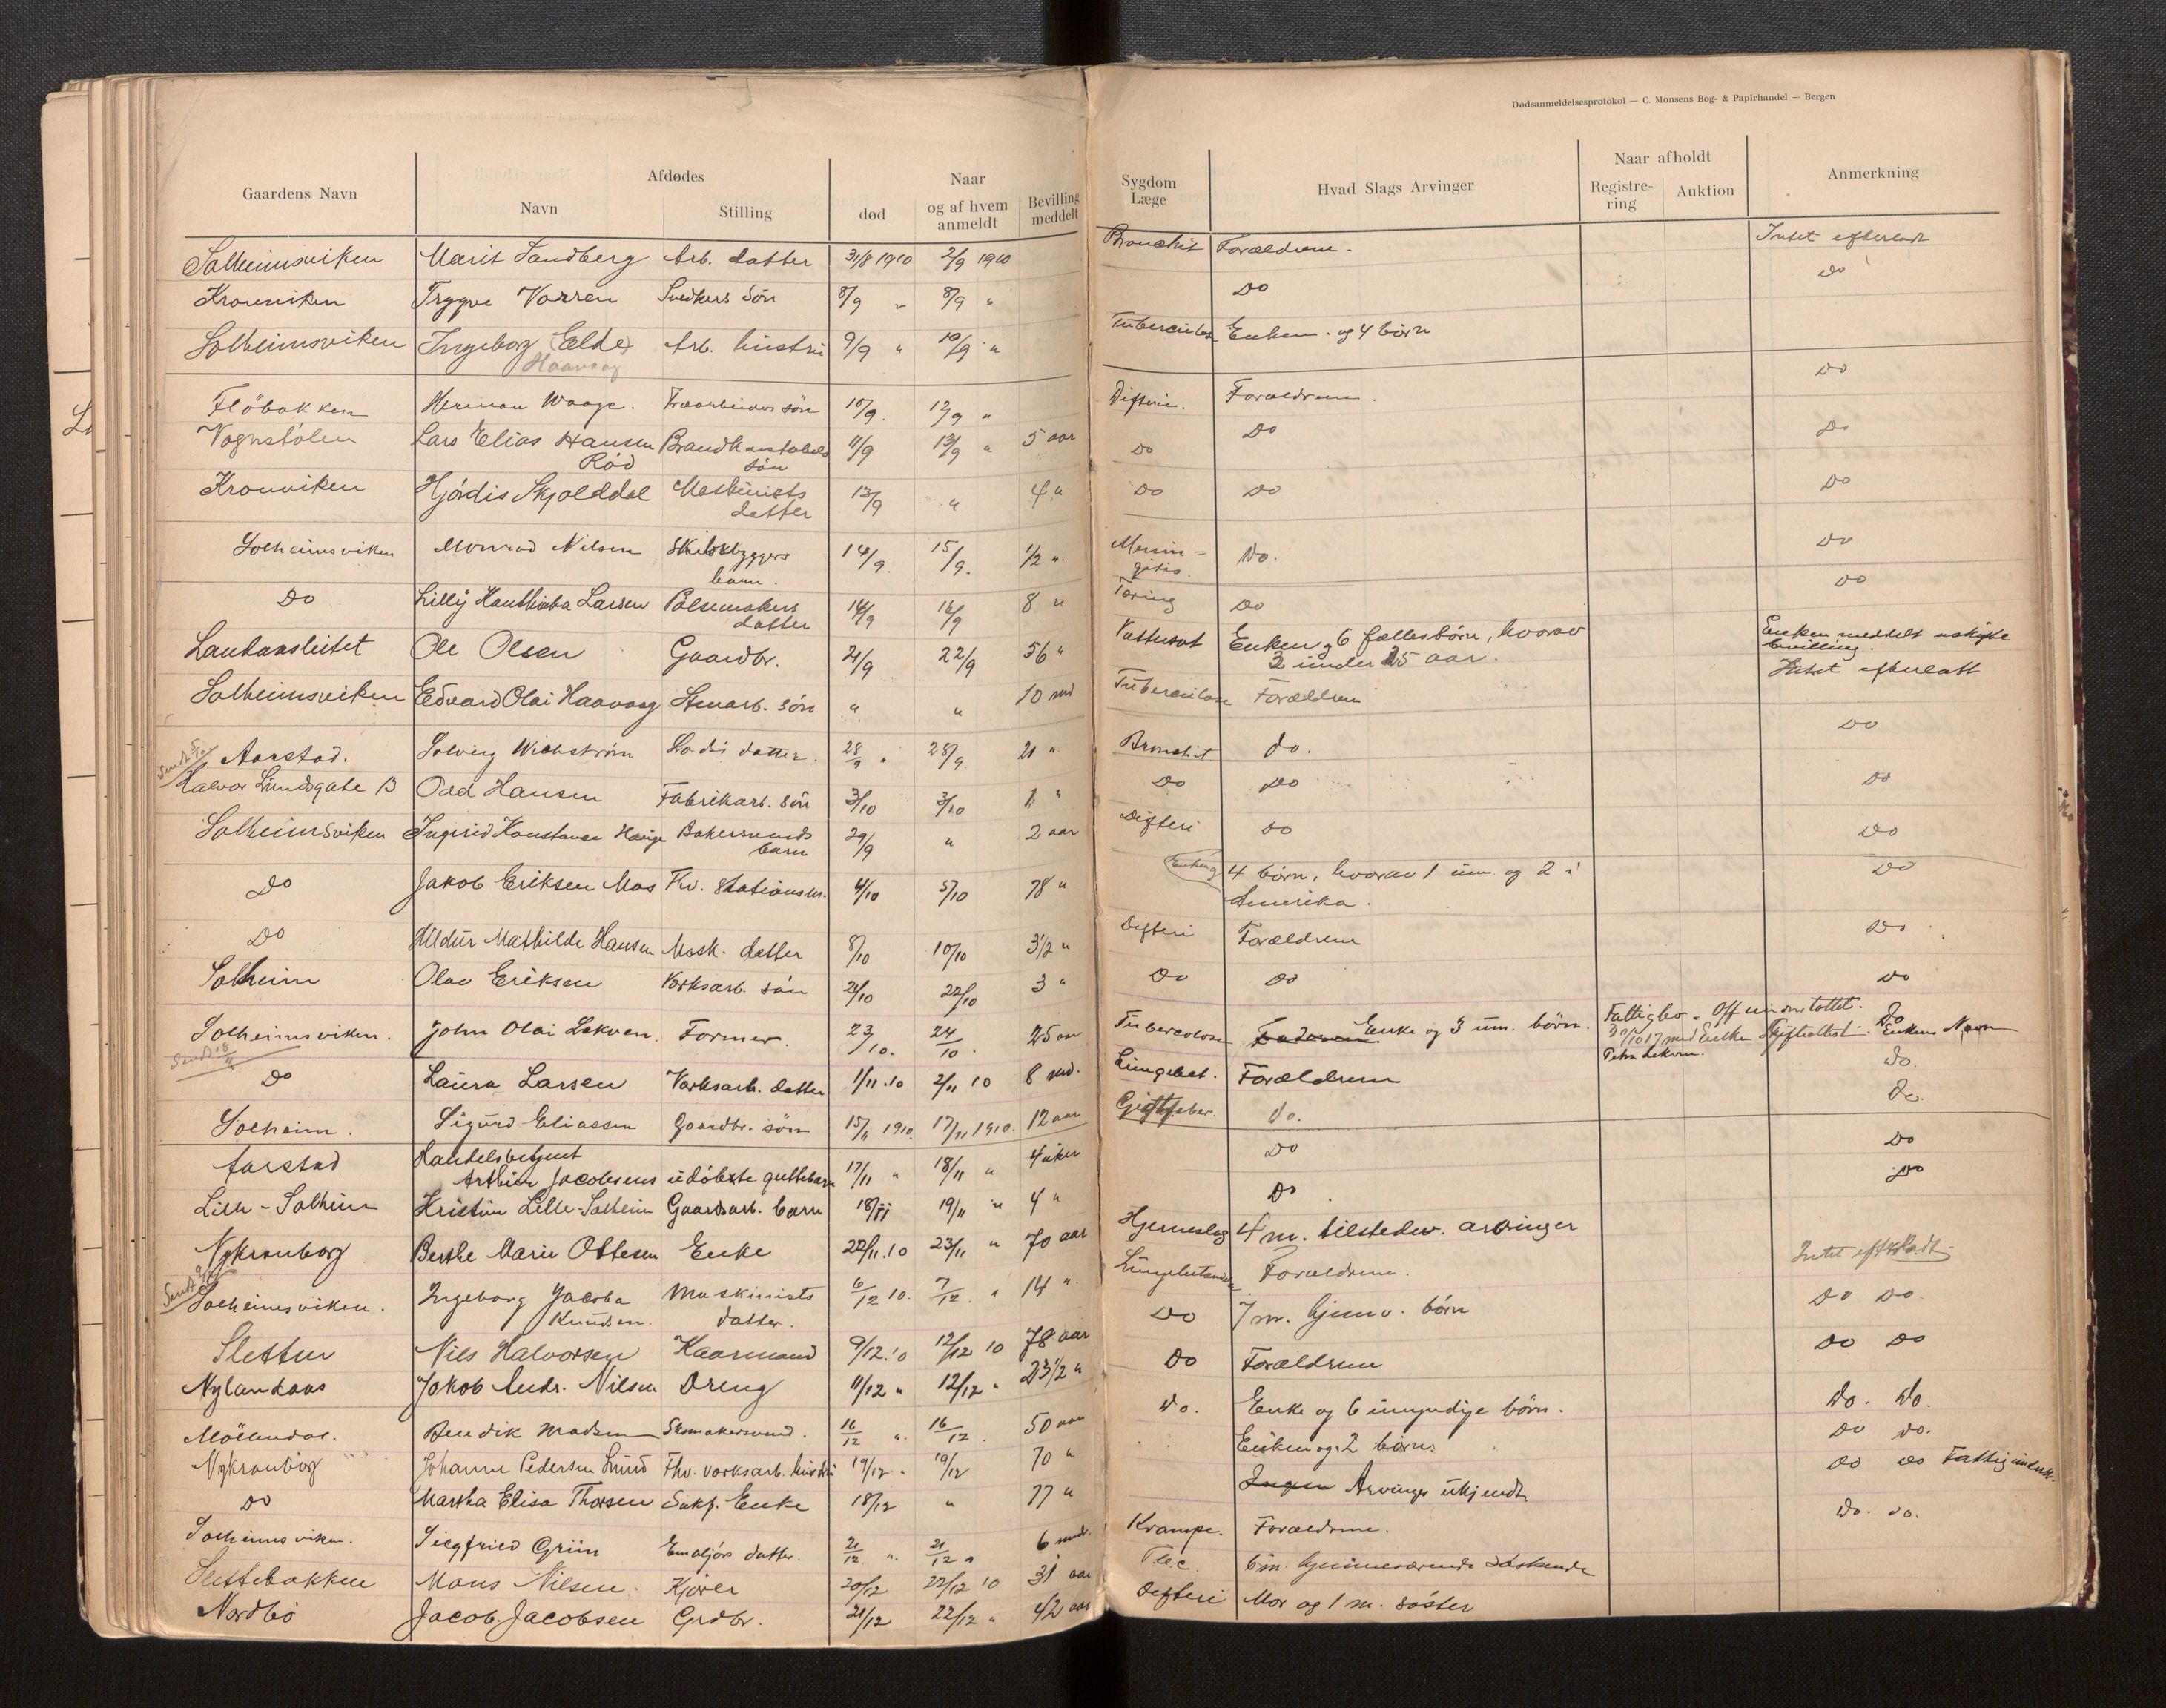 Dødsanmeldelsesprotokol — C. Monsens Bog- & Papirhandel — Bergen
Gaardens Navn Afdødes Navn Stilling død Naar og af hvem anmeldt Bevilling meddelt Sygdom Læge Hvad Slags Arvinger Naar afholdt Registrering Auktion Anmerkning
Solheimsviken Marit Sandberg Arb. datter 31/8 1910 2/9 1910 Bronchit Forældrene. Intet efterladt
Kronviken Trygve Vorren Snedkers Sön 8/9 " 8/9 " Do Do
Solheimsviken Ingeborg (Elde) Arb. hustru 9/9 " 10/9 " Tuberculose Enkem. og 4 börn
Haavaag Do
Flöbakken Herman Waage. sön 10/9. 12/9 " Difteri. Forældrene.
Vognstölen Lars Elias Hansen Brandkonstabels 11/9 13/9 " 5 aar Do Do Do
Röd sön
Kronviken Hjördis Skjolddal Maskinists 12/9 " 4 " Do Do Do
datter
Solheimsviken Monrad Nilsen Skibsbyggers 14/9. 15/9. 1/2 ". Menin= Do. Do
barn. gitis.
Do Lilly Larsen Pölsemakers 14/9 16/9 8 " Tæring Do Do
datter
Landaasleitet Ole Olsen Gaardbr. 21/9 22/9 56 " Vattersot Enken og 6 fællesbörn, hvorav Enken meddelt uskifte
2 under 15 aar. bevilling.
Solheimsviken Edvard Olai Haavaag Stenarb. sön " " 10 md Tuberculose Forældrene Intet efterladt
Sendt 5/10
Aarstad. Solveig Wickström datter. 28/9 " 28/9 21 " Bronchit do. Do
Halvor Lundsgate 13 Odd Hansen Fabrikarb. sön 3/10 3/10 1 " Do Do Do
Solheimsviken Ingrid Konstanse Hauge Bakersvends 29/9 " 2 aar Difteri do Do
barn
Do Jakob Eriksen Mos Fhv. Stationsm. 4/10 5/10 78 " Enken og 4 börn, hvorav 1 um. og 2 i Do
Amerika.
Do Hildur Mathilde Hansen Mask. datter 8/10 10/10 3 1/2 " Difteri Forældrene Do
Solheim Olav Eriksen Værksarb. sön 21/10 22/10 3 " Do Do Do
Solheimsviken. John Olai Lekven. Former. 23/10. 24/10. 25 aar Tuberculose Enke og 3 um. börn. Fattigbev. Off. understöttet. Do
30/10 17 med Enken Skifteattest. Enkens Navn
Petra Lekven.
Sendt 18/11
Do Laura Larsen Værksarb. datter 1/11.10 2/11 10 8 md. Lungebet. Forældrene do.
Solheim. Sigurd Eliassen Gaardbr. sön 15/11 1910. 17/11 1910. 12 aar Gigtfeber. do. do.
Aarstad Handelsbetjent
Arthur Jacobsens udöbte guttebarn 17/11 " 18/11 " 4 uker Do Do
Lille-Solheim Kristine Lille-Solheim Gaardsarb. barn 18/11 19/11 " 4 " Do. Do
Nykronborg Berthe Marie Ottesen Enke 22/11.10 23/11 " 70 aar Hjerneslag 4 m. tilstedev. arvinger
Solheimsviken. Ingeborg Jacoba Maskinists 6/12 10. 7/12. " 14 " Forældrene. Intet efterladt
Knudsen. datter.
Sletten Nils Halvorsen Kaarmand 9/12.10 12/12 10 78 aar Do 7 m. hjemv. börn Do Do.
Nylandaas Jakob Andr. Nilsen Dreng 11/12 " 12/12 " Do Forældrene Do Do
Möllendal. Bendik Madsen Skomakersvend. 16/12 ". 16/12. 50 aar do. Enke og 6 umyndige börn. do. do.
Nykronborg Johanne Pedersen Lund Fhv. værksarb. hustru 19/12 " 19/12 70 " Enken og 2 börn. Do do.
Do Martha Elisa Thorsen Enke 18/12 " 77 " Ingen Arvinger ukjendt Do do
Solheimsviken. Siegfried Grün datter. 21/12 ". 21/12 " 6 mdr. Krampe. Forældrene. do. do.
Slettebakken Mons Nilsen Kjörer 20/12 22/12 10 31 aar 6 m. hjemmeværende söskende
Nordbö Jacob Jacobsen Grdbr. 21/12 22/12 " 42 aar Difteri Mor og 1 m. söster